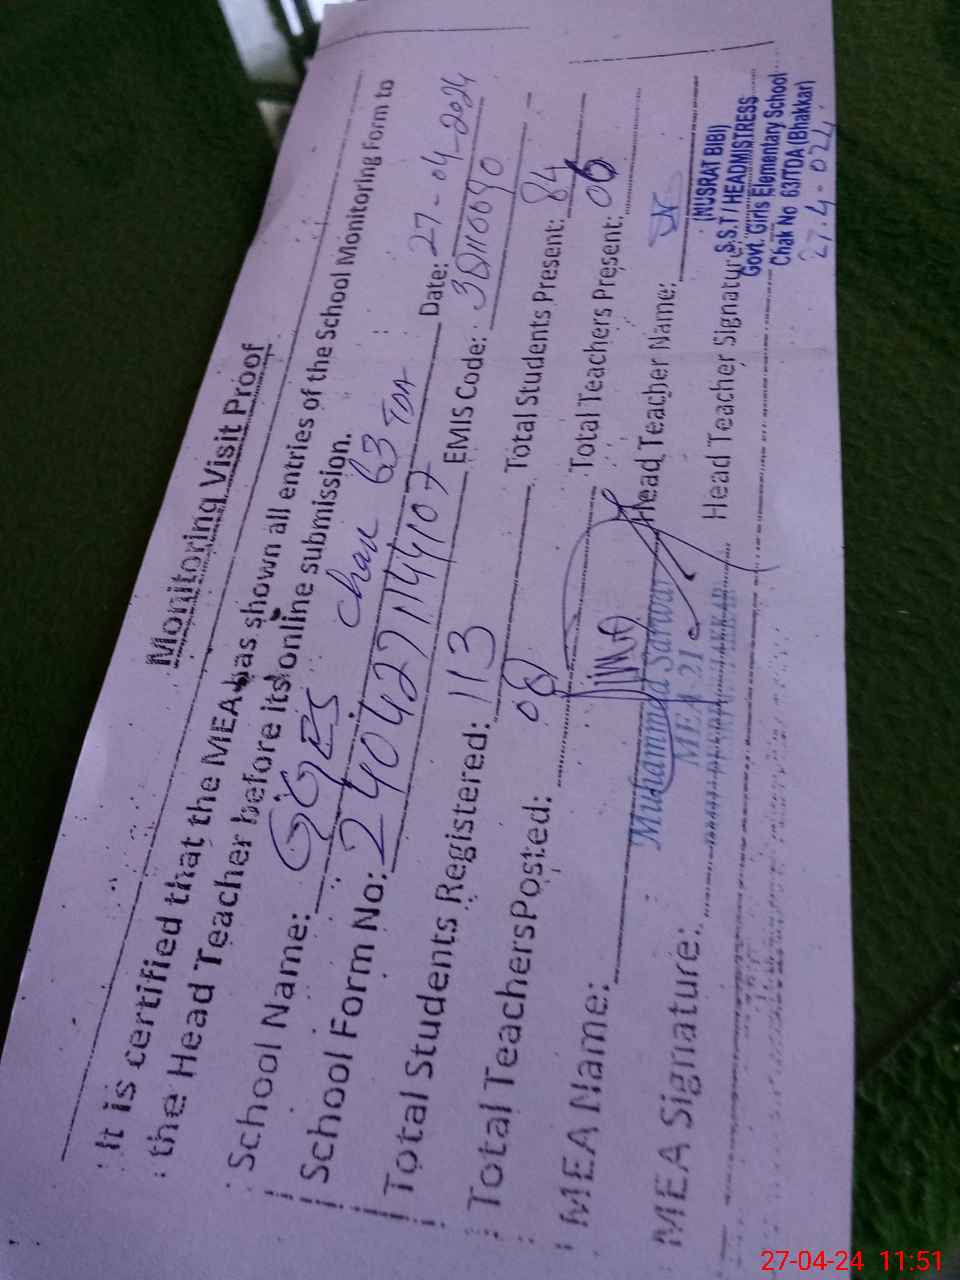 Monitoring Visit Proof
It is certified that the MEA has shown all entries of the School Monitoring Form to
the Head Teacher before its online submission.
School Name: GGES Chak 63 TDA Date: 27-04-2024
School Form No: 240427144107 EMIS Code: 38110090
Total Students Registered: 113 Total Students Present: 84
Total Teachers Posted: 08 Total Teachers Present: 06
MEA Name: Head Teacher Name:
Muhammad Sarwar
MEA 21
MEA Signature: Head Teacher Signature
(NUSRAT BIBI)
S.S.T / HEADMISTRESS
Govt. Girls Elementary School
Chak No 63/TDA (Bhakkar)
27.4-024
27-04-24 11:51